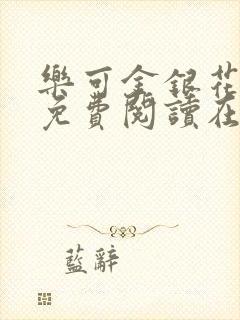 樂可金銀花
免費閱讀在
藍辭